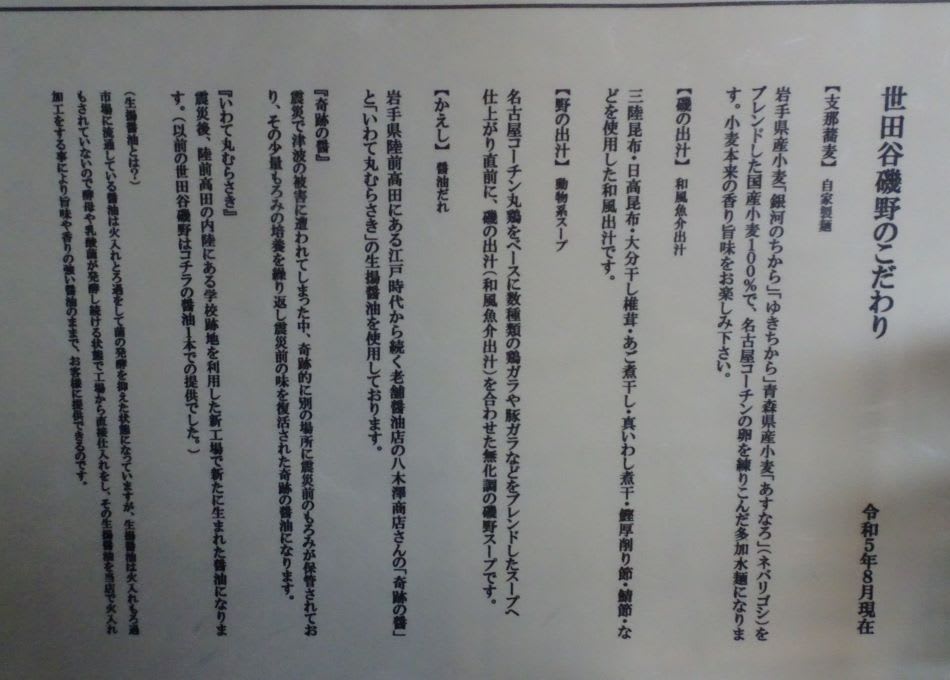 世田谷磯野のこだわり
令和5年8月現在
【支那蕎麦】 自家製麺
岩手県産小麦「銀河のちから」「ゆきちから」青森県産小麦「あすなろ」(ネバリゴシ)を
ブレンドした国産小麦100%で、名古屋コーチンの卵を練りこんだ多加水麺になりま
す。小麦本来の香り旨味をお楽しみ下さい。
【磯の出汁】 和風魚介出汁
三陸昆布・日高昆布・大分干し椎茸・あご煮干し・真いわし煮干・鰹厚削り節・鯖節・な
どを使用した和風出汁です。
【野の出汁】 動物系スープ
名古屋コーチン丸鶏をベースに数種類の鶏ガラや豚ガラなどをブレンドしたスープへ
仕上がり直前に、磯の出汁(和風魚介出汁)を合わせた無化調の磯野スープです。
【かえし】 醤油だれ
岩手県陸前高田にある江戸時代から続く老舗醤油店の八木澤商店さんの「奇跡の醤」
と「いわて丸むらさき」の生揚醤油を使用しております。
『奇跡の醤』
震災で津波の被害に遭われてしまった中、奇跡的に別の場所に震災前のもろみが保管されてお
り、その少量もろみの培養を繰り返し震災前の味を復活された奇跡の醤油になります。
『いわて丸むらさき』
震災後、陸前高田の内陸にある学校跡地を利用した新工場で新たに生まれた醤油になりま
す。(以前の世田谷磯野はコチラの醤油1本での提供でした。)
(生揚醤油とは?)
市場に流通している醤油は火入れとろ過をして菌の発酵を抑えた状態になっていますが、生揚醤油は火入れもろ過
もされていないので酵母や乳酸菌が発酵し続ける状態で工場から直接仕入れをし、その生揚醤油を当店で火入れ
加工をする事により旨味や香りの強い醤油のままで、お客様に提供できるのです。